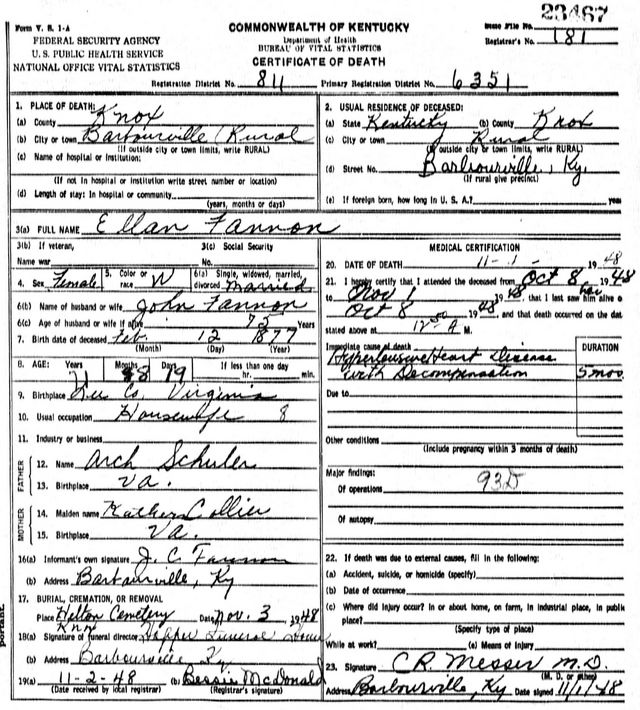 23467
Form V. S. 1-A
COMMONWEALTH OF KENTUCKY
State File No.
FEDERAL SECURITY AGENCY
Department of Health
Registrar's No. 181
U. S. PUBLIC HEALTH SERVICE
BUREAU OF VITAL STATISTICS
NATIONAL OFFICE VITAL STATISTICS
CERTIFICATE OF DEATH
Registration District No. 811 Primary Registration District No. 6351
1. PLACE OF DEATH:
(a) County Knox
(b) City or town Barbourville (Rural
(If outside city or town limits, write RURAL)
(c) Name of hospital or institution:
(If not in hospital or institution write street number or location)
(d) Length of stay: In hospital or community
(years, months or days)
2. USUAL RESIDENCE OF DECEASED:
(a) State Kentucky (b) County Knox
(c) City or town Rural
(If outside city or town limits, write RURAL)
(d) Street No. Barbourville, Ky.
(If rural give precinct)
(e) If foreign born, how long in U. S. A.? year
3(a) FULL NAME Ellan Fannon
3(b) If veteran, 3(c) Social Security
Name war No.
4. Sex Female 5. Color or race W 6(a) Single, widowed, married, divorced Married
6(b) Name of husband or wife John Fannon
6(c) Age of husband or wife if alive 75 Years
7. Birth date of deceased Feb. 12 1877
(Month) (Day) (Year)
8. AGE: Years 71 Months 8 Days 19 If less than one day
hr. min.
9. Birthplace Lee Co. Virginia
10. Usual occupation Housewife 8
11. Industry or business
FATHER
12. Name Arch Schuler
13. Birthplace Va.
MOTHER
14. Maiden name Collier
15. Birthplace Va.
16(a) Informant's own signature J. C. Fannon
(b) Address Barbourville, Ky
17. BURIAL, CREMATION, OR REMOVAL
Place Helton Cemetery Date Nov. 3, 1948
Knox
18(a) Signature of funeral director Hopper Funeral Home
(b) Address Barbourville Ky.
19(a) 11-2-48 (b) Bessie McDonald
(Date received by local registrar) (Registrar's signature)
MEDICAL CERTIFICATION
20. DATE OF DEATH 11-1- 1948
21. I hereby certify that I attended the deceased from Oct 8, 1948
to Nov 1 1948, that I last saw him alive o
Oct 8 1948, and that death occurred on the dat
stated above at 12 A M.
Immediate cause of death DURATION
Hypertensive Heart Disease
with Decompensation 5 mos.
Due to
Other conditions
(Include pregnancy within 3 months of death)
Major findings:
Of operations 93D
Of autopsy
22. If death was due to external causes, fill in the following:
(a) Accident, suicide, or homicide (specify)
(b) Date of occurrence
(c) Where did injury occur? In or about home, on farm, in industrial place, in public
place?
(Specify type of place)
While at work? (e) Means of injury
23. Signature C.R. Messer M.D.
(M. D. or other)
Address Barbourville, Ky Date signed 11/1/48
portant.